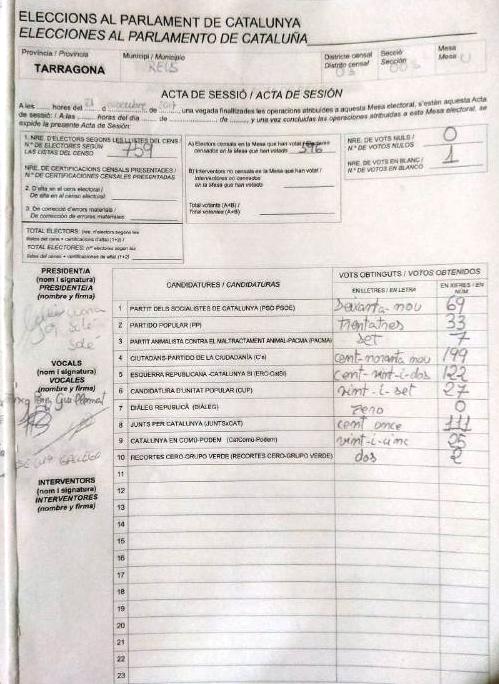 ELECCIONS AL PARLAMENT DE CATALUNYA
ELECCIONES AL PARLAMENTO DE CATALUÑA
Província / Provincia
TARRAGONA
Municipi / Municipio
REUS
Districte censal
Distrito censal
03
Secció
Sección
003
Mesa
Mesa
U
ACTA DE SESSIÓ / ACTA DE SESIÓN
A les hores del 21 d de 2017, una vegada finalitzades les operacions atribuïdes a aquesta Mesa electoral, s'estén aquesta Acta
de sessió: / A las horas del día de de , y una vez concluidas las operaciones atribuidas a esta Mesa electoral, se
expide la presente Acta de Sesión:
1. NRE. D'ELECTORS SEGONS LES LLISTES DEL CENS
N.º DE ELECTORES SEGÚN
LAS LISTAS DEL CENSO
759
NRE. DE CERTIFICACIONS CENSALS PRESENTADES /
N.º DE CERTIFICACIONES CENSALES PRESENTADAS
2. D'alta en el cens electoral /
De alta en el censo electoral
3. De correcció d'errors materials /
De corrección de errores materiales
TOTAL ELECTORS:
TOTAL ELECTORES:
A) Electors censats en la Mesa que han votat /
censados en la Mesa que han votado
596
B) Interventors no censats en la Mesa que han votat /
Interventores no censados
en la Mesa que han votado
Total votants (A+B) /
Total votantes (A+B)
NRE. DE VOTS NULS /
N.º DE VOTOS NULOS
0
NRE. DE VOTS EN BLANC /
N.º DE VOTOS EN BLANCO
1
PRESIDENT/A
(nom i signatura)
PRESIDENTE/A
(nombre y firma)
VOCALS
(nom i signatura)
VOCALES
(nombre y firma)
INTERVENTORS
(nom i signatura)
INTERVENTORES
(nombre y firma)
CANDIDATURES / CANDIDATURAS
VOTS OBTINGUTS / VOTOS OBTENIDOS
EN LLETRES / EN LETRA
EN XIFRES / EN NÚM.
1 PARTIT DELS SOCIALISTES DE CATALUNYA (PSC-PSOE) Seixanta-nou 69
2 PARTIDO POPULAR (PP) trentatres 33
3 PARTIT ANIMALISTA CONTRA EL MALTRACTAMENT ANIMAL-PACMA (PACMA) set 7
4 CIUTADANS-PARTIDO DE LA CIUDADANÍA (C's) cent-noranta nou 199
5 ESQUERRA REPUBLICANA -CATALUNYA SÍ (ERC-CatSí) cent-vint-i-dos 122
6 CANDIDATURA D'UNITAT POPULAR (CUP) vint-i-set 27
7 DIÀLEG REPUBLICÀ (DIÀLEG) zero 0
8 JUNTS PER CATALUNYA (JUNTSxCAT) cent onze 111
9 CATALUNYA EN COMÚ-PODEM (CatComú-Podem) vint-i-cinc 25
10 RECORTES CERO-GRUPO VERDE (RECORTES CERO-GRUPO VERDE) dos 2
11
12
13
14
15
16
17
18
19
20
21
22
23